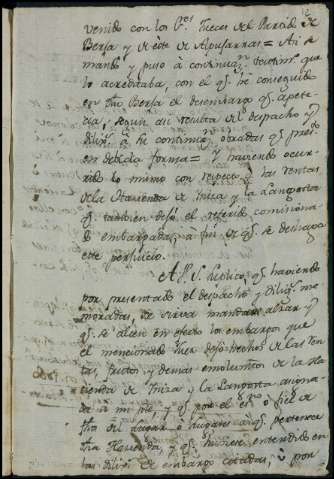 venido con los Sres. Jueces del Partido de
Berja y de este de Alpujarras = Asi se
mando y puso a continuazn.
lo acreditaba, con el qe. he conseguido
en dho Berja el desembarg qe. apete
cia, segun asi resulta del despacho y
dilixs. a su continuazn. obradas qe. pres
en debida forma = Y haviendo ocur
rido lo mismo con respecto a las rentas
de la Hacienda de Iniza y la Langosta
qe. tambien dejó el referido comisiona
do embargadas, a fin de qe. se deshaga
este perjuicio.
A V. S. suplico, qe. haviendo
por presentado el despacho y dilixs. me
moradas, se sirva mandar alzar y
qe. se alzen en efecto los embargos que
el mencionado Juez dejó hechos de las ren
tas, frutos y demas emolumtos de la Ha
cienda de Iniza y la Langosta asigna
da a mi pte, y qe. por el esno. o fiel de
fhos del lugar, o lugares a qe. pertenece
dha Hacienda, y qe. hubiese entendido en
las dilixs. de embargo citadas, o por